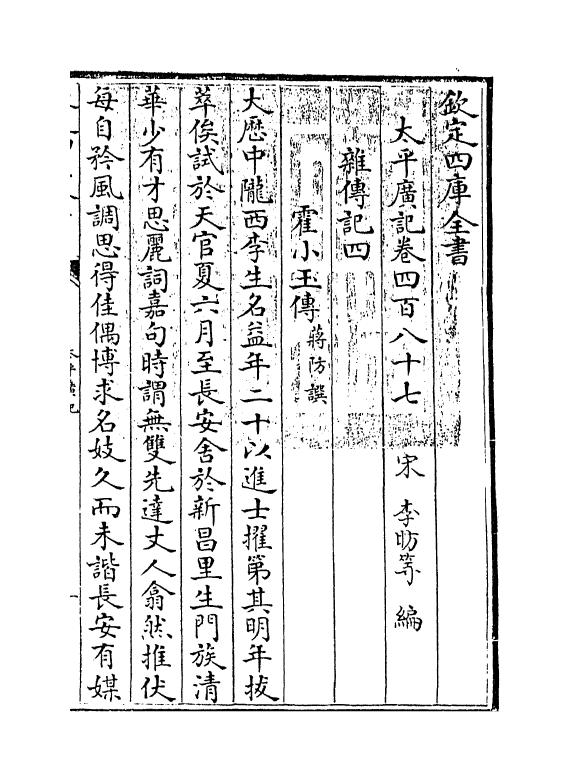 欽定四庫全書
太平廣記卷四百八十七 宋 李昉等 編
雜傳記四
霍小玉傳 蔣防譔
大歷中隴西李生名益年二十以進士擢第其明年拔
萃俟試於天官夏六月至長安舍於新昌里生門族清
華少有才思麗詞嘉句時謂無雙先達丈人翕然推伏
每自矜風調思得佳偶博求名妓久而未諧長安有媒